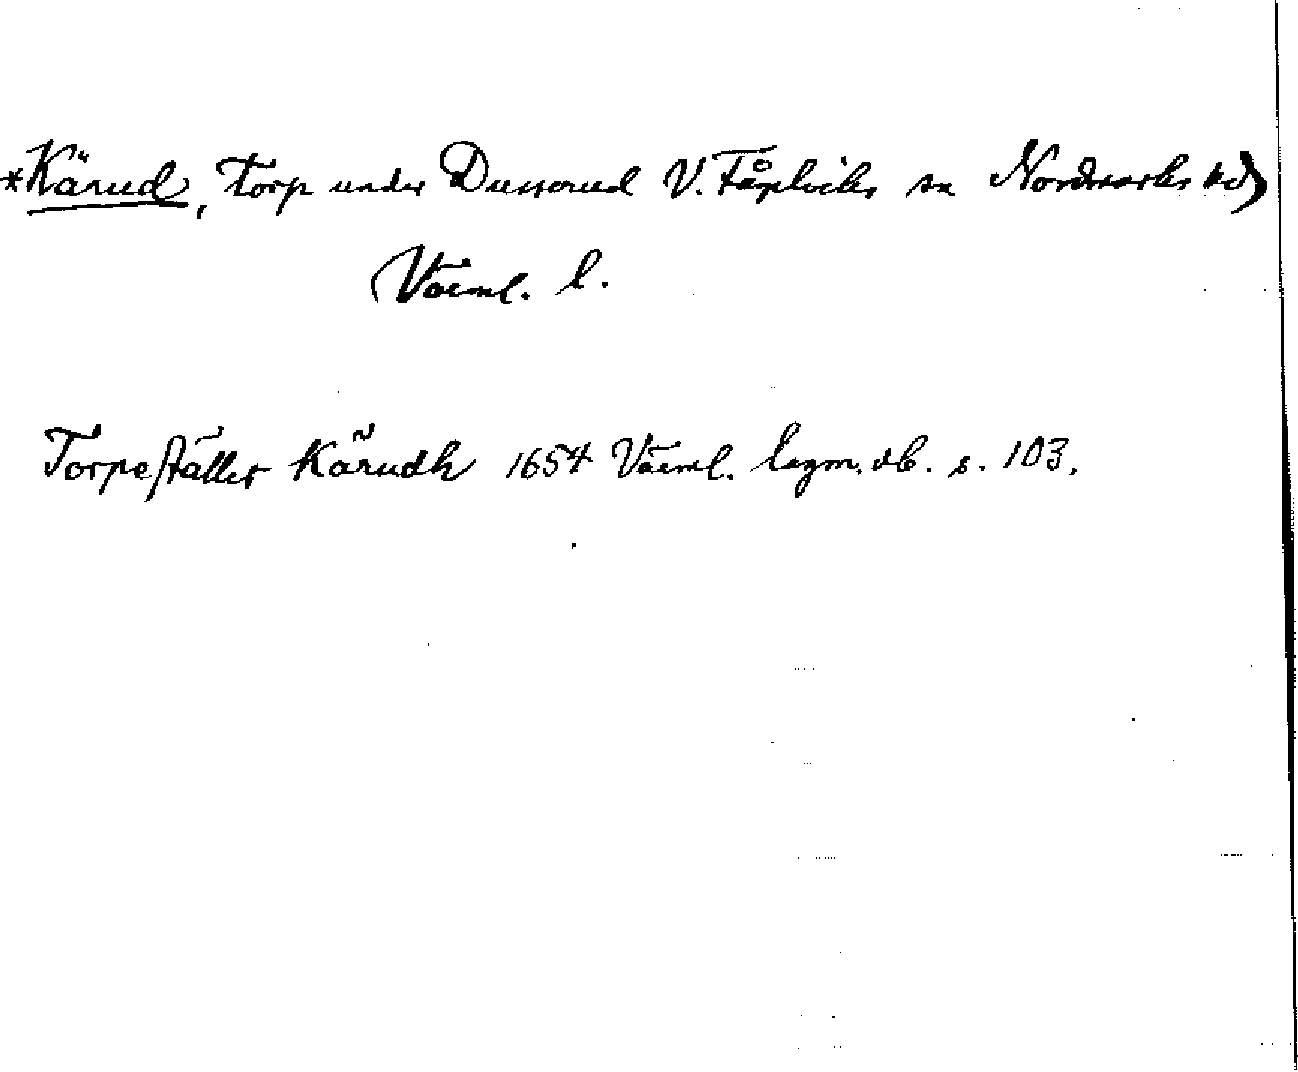 *Kärud, torp under Dusserud V. Fågelviks sn Nordmarks hd
Värml. l.
Torpeställer Kärudh 1654 Värml. lagm. db. s. 103.